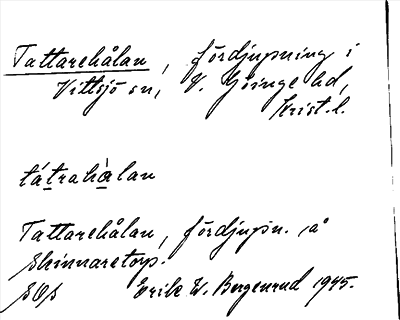 Tattarehålan, fördjupning i
Vittsjö sn, V. Göinge hd,
Krist. l.
tátrahàlan
Tattarehålan, fördjupn. å
Skinnaretorp.
SOS Erik W. Bergenrud 1945.